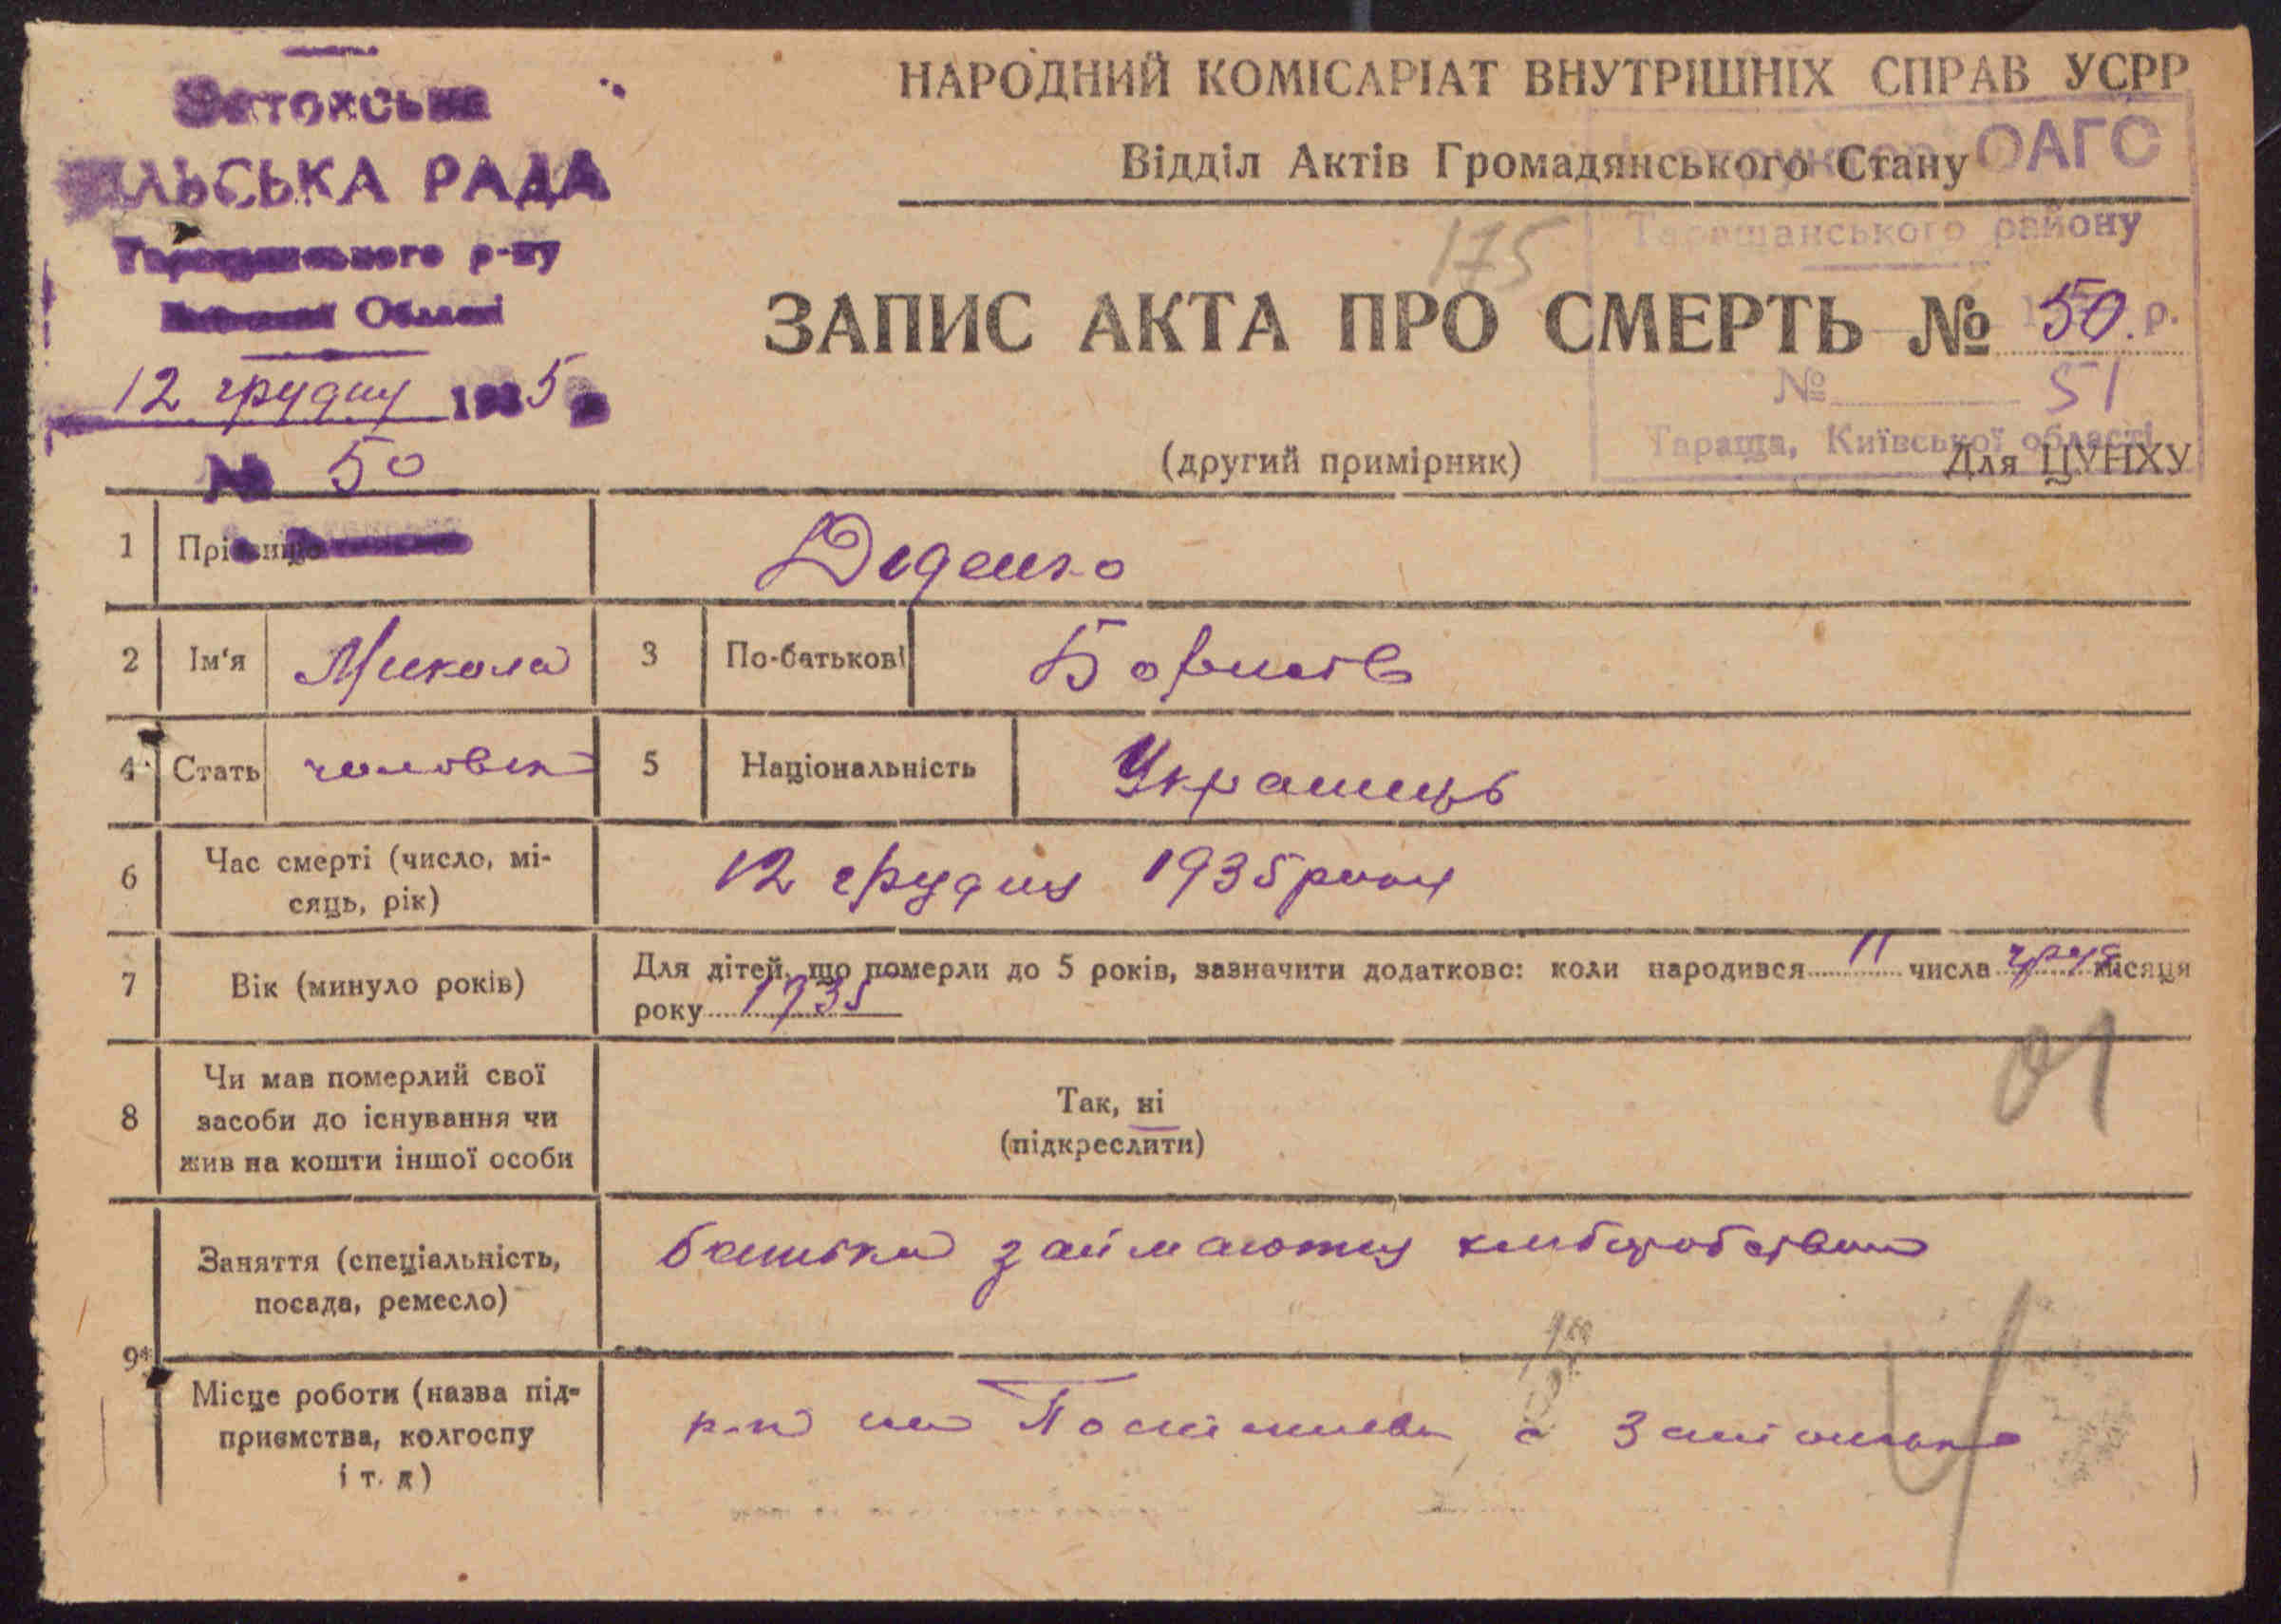 СІЛЬСЬКА РАДА
Таращанського р-ну
Київської Області
12 грудня 1935
№ 50
НАРОДНИЙ КОМІСАРІАТ ВНУТРІШНІХ СПРАВ УСРР
Відділ Актів Громадянського Стану
ОАГС
Таращанського району
175
ЗАПИС АКТА ПРО СМЕРТЬ № 50.
р.
№ 51
Тараща, Київської області
(другий примірник)
Для ЦУНХУ
1 Прізвище Діденко
2 Ім'я Микола 3 По-батькові Борисів
4 Стать чоловік 5 Національність Українець
6 Час смерті (число, мі-
сяць, рік) 12 грудня 1935 року
7 Вік (минуло років) Для дітей, що померли до 5 років, зазначити додатково: коли народився 11 числа груд місяця
року 1935
01
8 Чи мав померлий свої
засоби до існування чи
жив на кошти іншої особи
Так, ні
(підкреслити)
9* Заняття (спеціальність,
посада, ремесло)
батьки займаються хліборобством
Місце роботи (назва під-
приємства, колгоспу
і т. д)
4